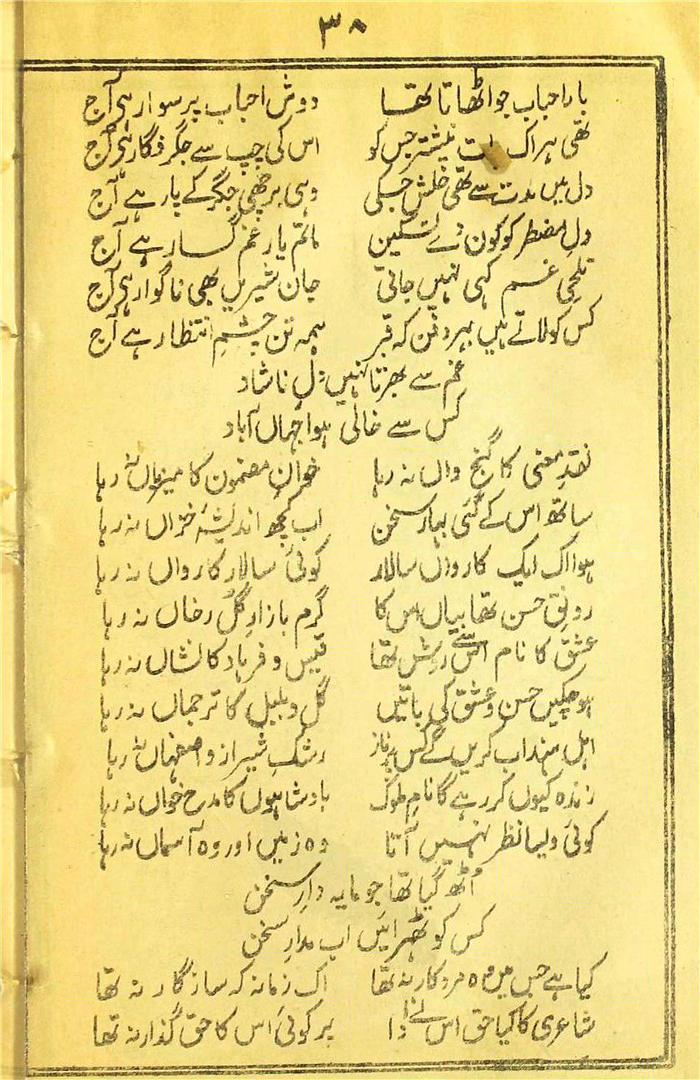 ۳۸
بار احباب جو اٹھاتا تھا دوش احباب پر سوار ہی آج
تھی ہر اک بات نیشتر جس کو اس کی چپ سے جگر فگار ہی آج
دل میں مدت سے تھی خلش جسکی وہی برچھی جگر کے پار ہے آج
دلِ مضطر کو کون دے تسکین ماتم یار غم گسار ہے آج
تلخیِ غم کہی نہیں جاتی جان شیریں بھی ناگوار ہی آج
کس کو لاتے ہیں بہر دفن کہ قبر ہمہ تن چشمِ انتظار ہے آج
غم سے بھرتا نہیں دلِ ناشاد
کس سے خالی ہوا جہاں آباد
نقدِ معنی کا گنج واں نہ رہا خوانِ مضمون کا میزباں نہ رہا
ساتھ اس کے گئی بہار سخن اب کچھ اندیشۂ خزاں نہ رہا
ہوا اک ایک کارواں سالار کوئی سالار کارواں نہ رہا
رونق حسن تھا بیاں اس کا گرم بازارِ گل رخاں نہ رہا
عشق کا نام اس سے روشن تھا قیس و فرہاد کا نشاں نہ رہا
ہو چکیں حسن و عشق کی باتیں گل و بلبل کا ترجماں نہ رہا
اہل ہند اب کریں گے کس پر ناز رشکِ شیراز و اصفہاں نہ رہا
زندہ کیوں کر رہے گا نامِ ملوک بادشاہوں کا مدح خواں نہ رہا
کوئی ویسا نظر نہیں آتا وہ زمیں اور وہ آسماں نہ رہا
اُٹھ گیا تھا جو مایہ دارِ سخن
کس کو ٹھہرائیں اب مدارِ سخن
کیا ہے جس میں وہ مرد کار نہ تھا اک زمانہ کہ سازگار نہ تھا
شاعری کا کیا حق اس نے ادا پر کوئی اس کا حق گذار نہ تھا